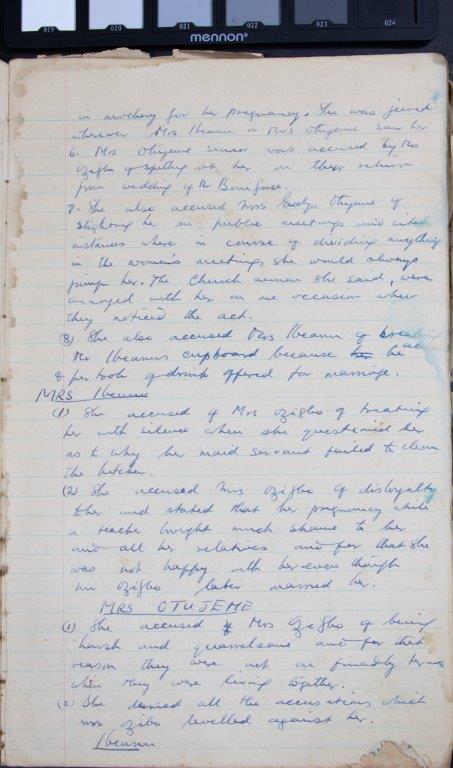 019 020 021 022 023 024
mennon
in mothery for her pregnancy. She was jeered
wherever Mrs Ibeanu or Mrs Otujeme saw her
6. Mrs Otujeme senior was accused by Mrs
Ozigbo of spitting at her on their return
from wedding of Mr Boniface.
7. She also accused Mrs Otujeme of
slighting her in public meetings and cited
instances where in course of dividing anything
in the women's meeting, she would always
jump her. The Church women she said, were
annoyed with her on one occasion when
they noticed the act.
(8) She also accused Mrs Ibeanu of breaking
Mr Ibeanu's cupboard because he
& her took of drink offered for marriage.
MRS Ibeanu
(1) She accused of Mrs Ozigbo of treating
her with silence when she questioned her
as to why her maid servant failed to clean
the kitchen.
(2) She accused Mrs Ozigbo of disloyalty
to her and stated that her pregnancy while
a teacher brought much shame to her
and all her relatives and for that she
was not happy with her even though
Mr Ozigbo later married her.
MRS OTUJEME
(1) She accused Mrs Ozigbo of being
harsh and quarrelsome and for that
reason they were not on friendly terms
when they were living together.
(2) She denied all the accusations which
Mrs Ozibo levelled against her.
Ibeanu